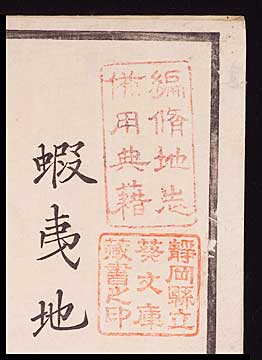 編脩地志
備用典籍
靜岡縣立
葵文庫
藏書之印
蝦夷地